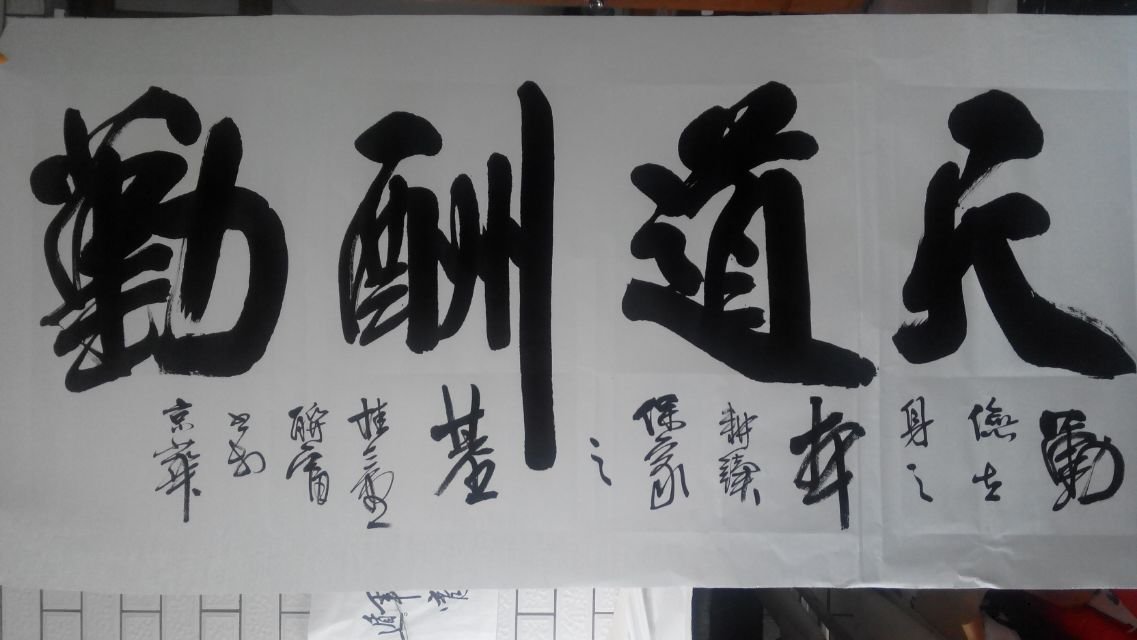 天道酬勤
勤
儉立
身之
本
耕讀
保家
之
基
书於
京華